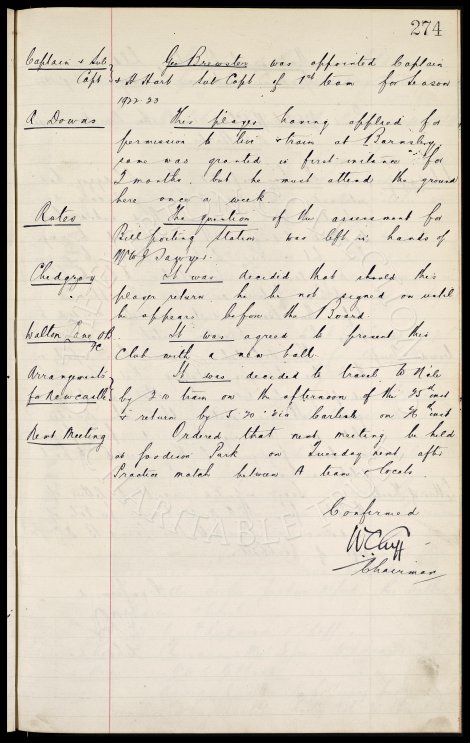 274
Captain & Sub Capt Geo Brewster was appointed Captain
& H Hart Sub Capt of 1st team for season
1922-23
R Downs This player having applied for
permission to live & train at Barnsley
same was granted in first instance for
2 months. but he must attend the ground
here once a week
Rates The question of the assessment for
Bill posting Station was left in hands of
Mr W J Sawyer.
Chedgzoy It was decided that should this
player return he be not signed on until
he appears before the Board.
Walton Lane OB FC It was agreed to present this
Club with a new ball.
Arrangements for Newcastle It was decided to travel to
by train on the afternoon of the 25th inst
& return by via Carlisle on 26th inst
Next Meeting Ordered that next meeting be held
at Goodison Park on Tuesday next, after
Practice match between A team & locals.
Confirmed
W C Cuff
Chairman
CHARITABLE